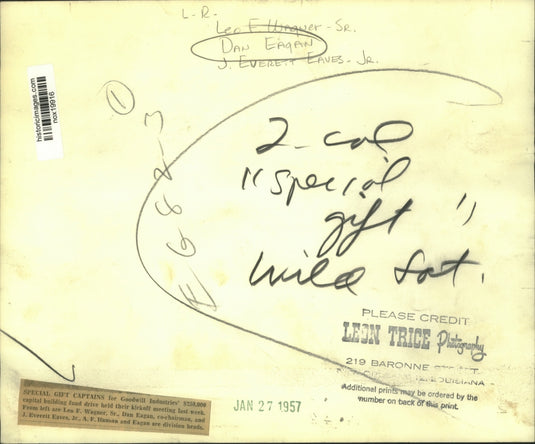 L-R.
Leo F Wagner - Sr.
DAN EAGAN
J. EVERETT EAVES - JR.
historicimages.com
nox19916
1
E682-3
2-col
"special
gift"
Sat.
PLEASE CREDIT
LEON TRICE Photography
219 BARONNE
Additional prints may be ordered by the
number on back of this print.
SPECIAL GIFT CAPTAINS for Goodwill Industries' $250,000
capital building fund drive held their kickoff meeting last week.
From left are Leo F. Wagner, Sr., Dan Eagan, co-chairman, and
J. Everett Eaves, Jr., A. F. Hamson and Eagan are division heads.
JAN 27 1957